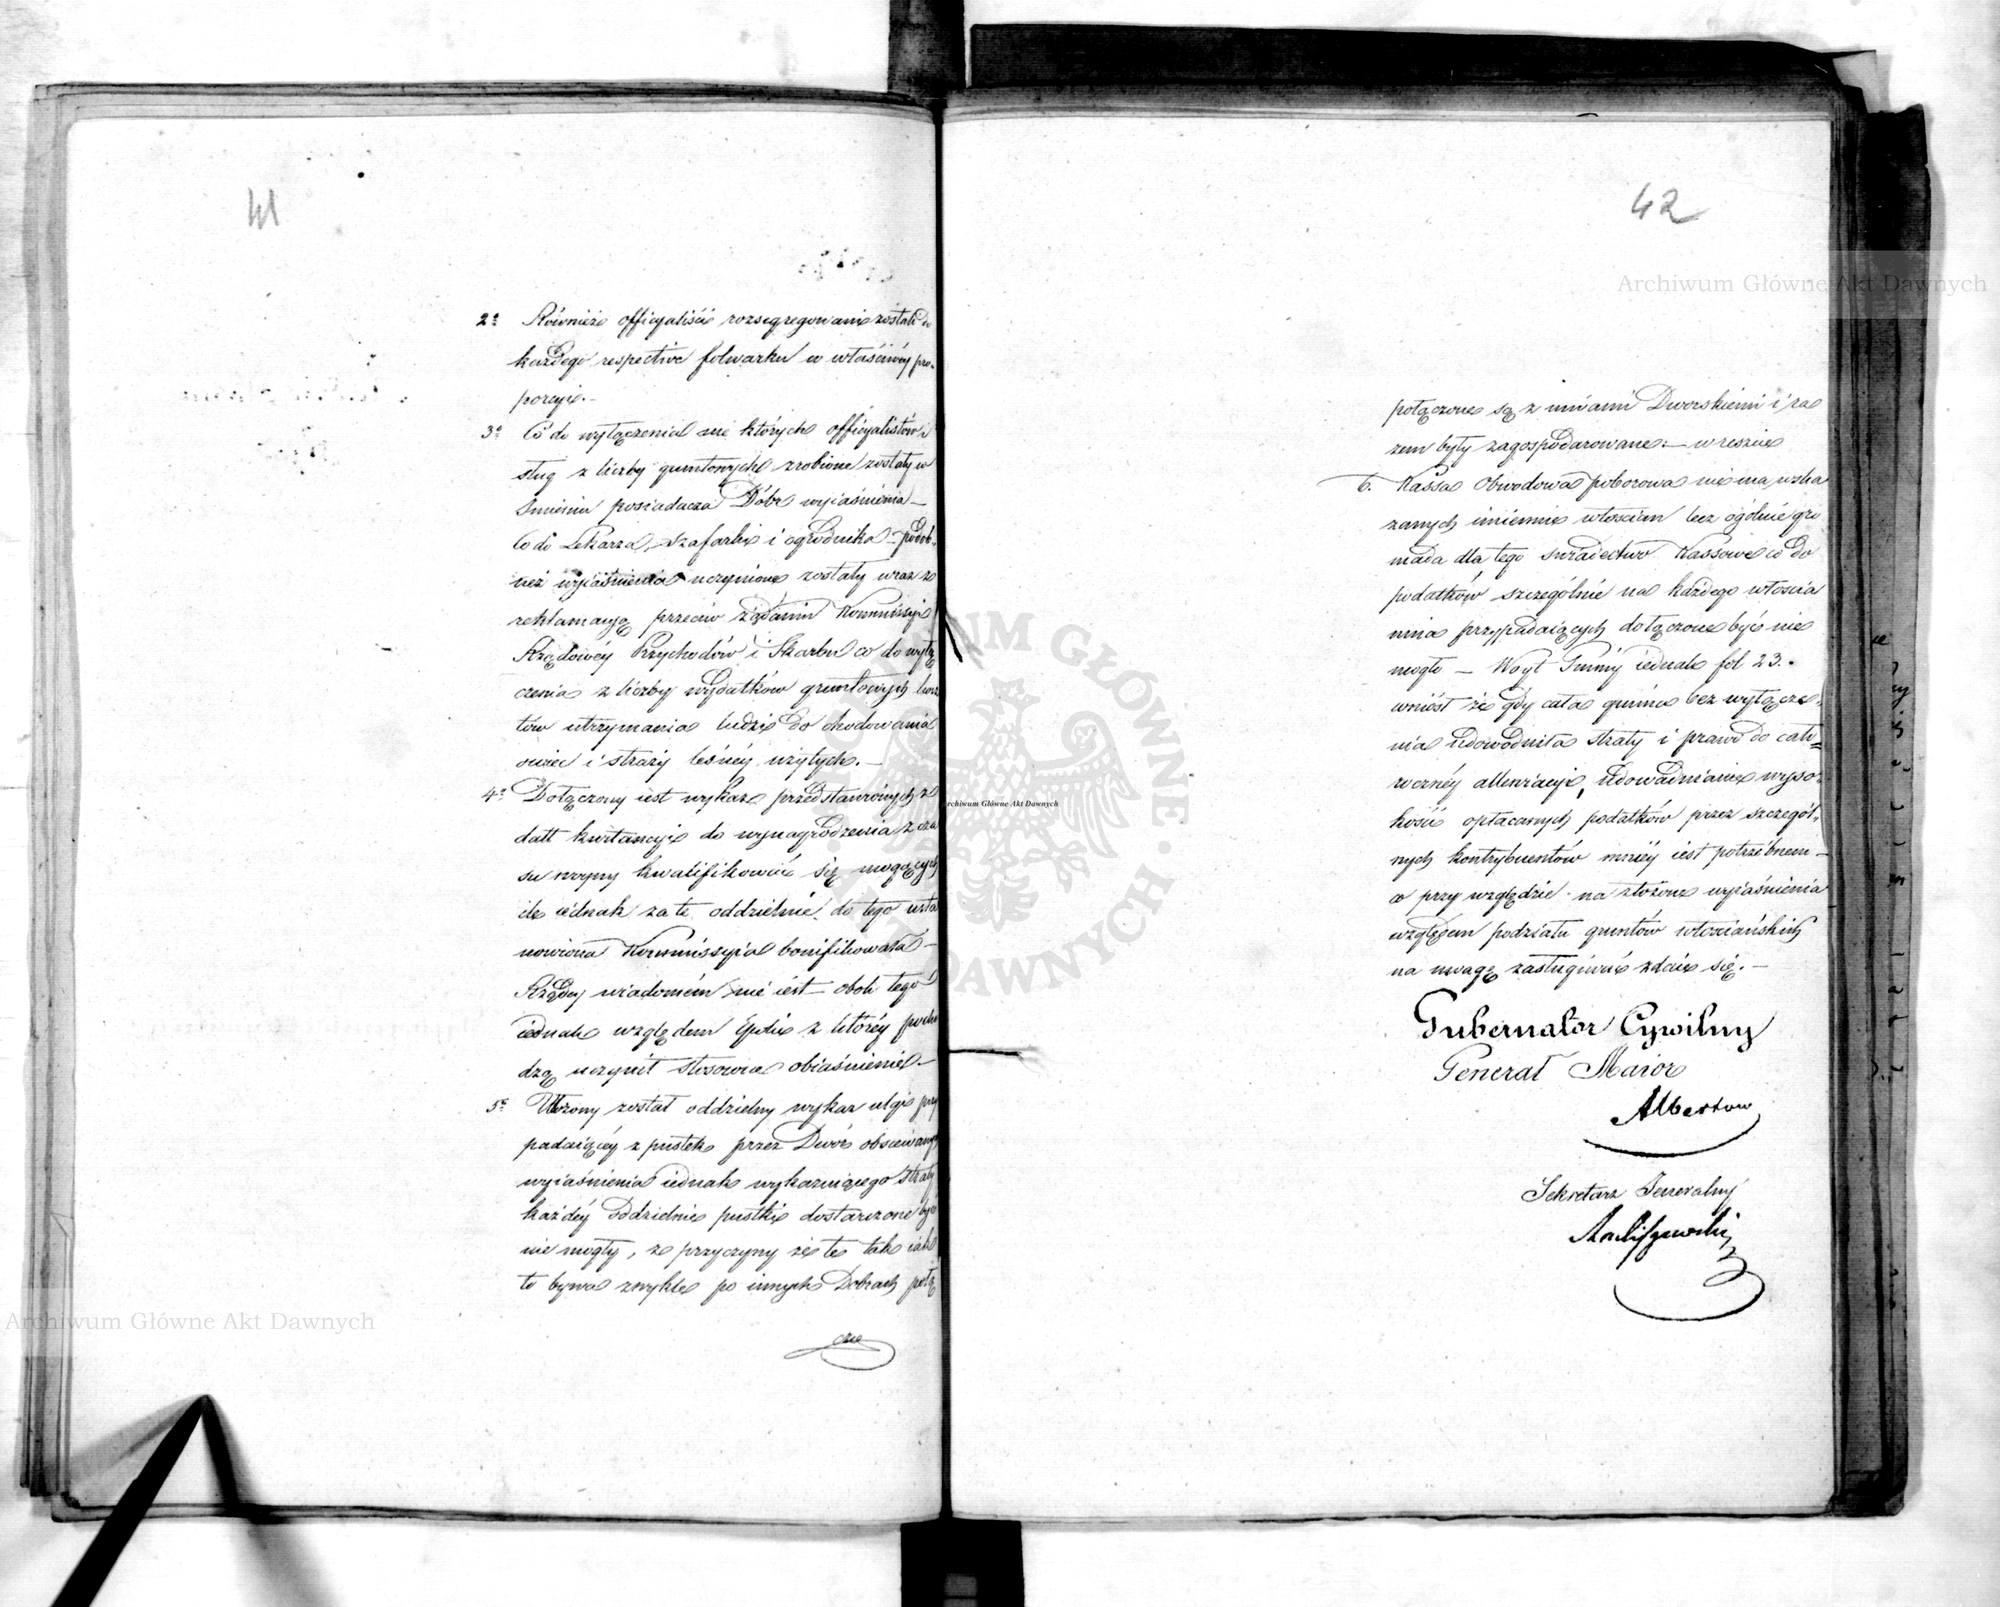 41
2º Również officyaliści rozsegregowani zostali do
każdego respective folwarku w właściwéy pro-
porcyi.-
3º Co do wyłączenia nie których officyalistów i
sług z liczby gruntowych zrobione zostały w
Imieniu posiadacza Dóbr wyiaśnienia -
Co do Lekarza, szafarki i ogrodnika - podob-
nież wyiaśnienia uczynione zostały wraz z
reklamacyą przeciw żądaniu Kommissyi
Rządowéy Przychodów i Skarbu co do wyłą
czenia z liczby wydatków gruntowych kosz
tów utrzymania ludzi do chodowania
owiec i straży leśnéy użytych. -
4º Dołączony iest wykaz przedstawionych z
datt kwitancyi do wynagrodzenia z cza
su woyny kwalifikować się mogących
ile iednak za te oddzielnie do tego usta
nowiona Kommissyia bonifikowała -
Rządcy wiadomem nie iest - obok tego
iednak względem Epoki z któréy pocho
dzą uczynił stosowne obiaśnienie -
5º Złożony został oddzielny wykaz ulgi przy
padaiącéy z pustek przez Dwór obsiewanych
wyiaśnienia iednak wykazuiącego straty
każdéy oddzielnie pustki dostarczone być
nie mogły, z przyczyny że te tak iak
to bywa zwykle po innych Dobrach połą
czo
42
połączone są z niwami Dworskiemi i ra
zem były zagospodarowane: - wreszcie
6. Kassa Obwodowa poborowa nie ma wska
zanych imiennie włościan lecz ogólnie gro
mada dla tego świadectwo Kassowe co do
podatków szczególnie na każdego włościa
nina przypadaiących dołączone być nie
mogło - Woyt Gminy iednak fol 23.
wniósł że gdy cała gmina bez wyłącze-
nia udowodniła straty i prawo do cało=
roczney allewiacyi, udowadnianie wyso-
kości opłacanych podatków przez szczegól-
nych kontrybuentów mniéy iest potrzebnem -
co przy względzie na złożone wyiaśnienia
względem podziału gruntów włościańskich
na uwagę zasługiwać zdaie się. -
Gubernator Cywilny
Generał Maior
Albertow
Sekretarz Jeneralny
Archiwum Główne Akt Dawnych
Archiwum Główne Akt Dawnych
Archiwum Główne Akt Dawnych
ARCHIWUM GŁÓWNE AKT DAWNYCH